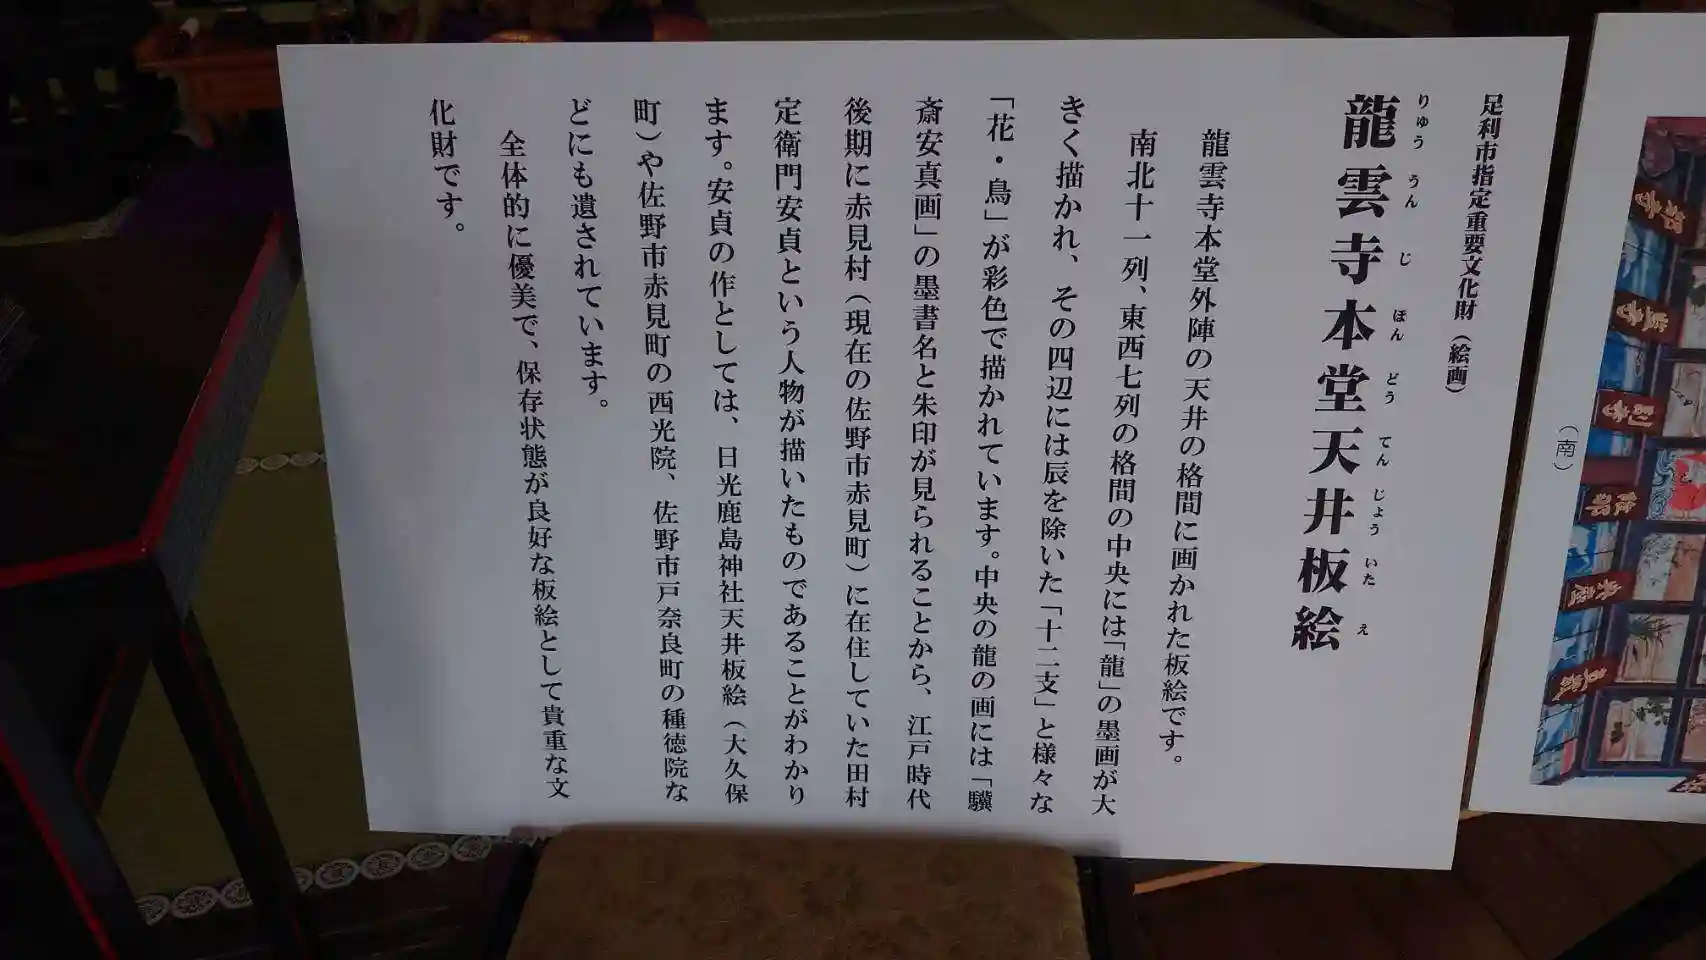 足利市指定重要文化財（絵画）
龍雲寺本堂天井板絵
りゅううんじほんどうてんじょういたえ
龍雲寺本堂外陣の天井の格間に画かれた板絵です。
南北十一列、東西七列の格間の中央には「龍」の墨画が大
きく描かれ、その四辺には辰を除いた「十二支」と様々な
「花・鳥」が彩色で描かれています。中央の龍の画には「驥
斎安真画」の墨書名と朱印が見られることから、江戸時代
後期に赤見村（現在の佐野市赤見町）に在住していた田村
定衛門安貞という人物が描いたものであることがわかり
ます。安貞の作としては、日光鹿島神社天井板絵（大久保
町）や佐野市赤見町の西光院、佐野市戸奈良町の種徳院な
どにも遺されています。
全体的に優美で、保存状態が良好な板絵として貴重な文
化財です。
（南）